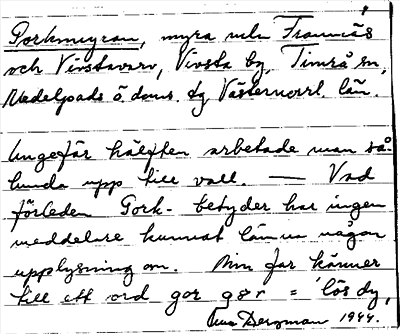 Gorkmyran, myra mln Frannäs
och Vivstavarv, Vivsta by, Timrå sn,
Medelpads ö. doms. dg Västernorrl. län.
Ungefär hälften arbetade man så-
lunda upp till vall. — Vad
förleden Gork- betyder har ingen
meddelare kunnat lämna någon
upplysning om. Min far känner
till ett ord gor gɷr = 'lös dy,
Bergman 1944.